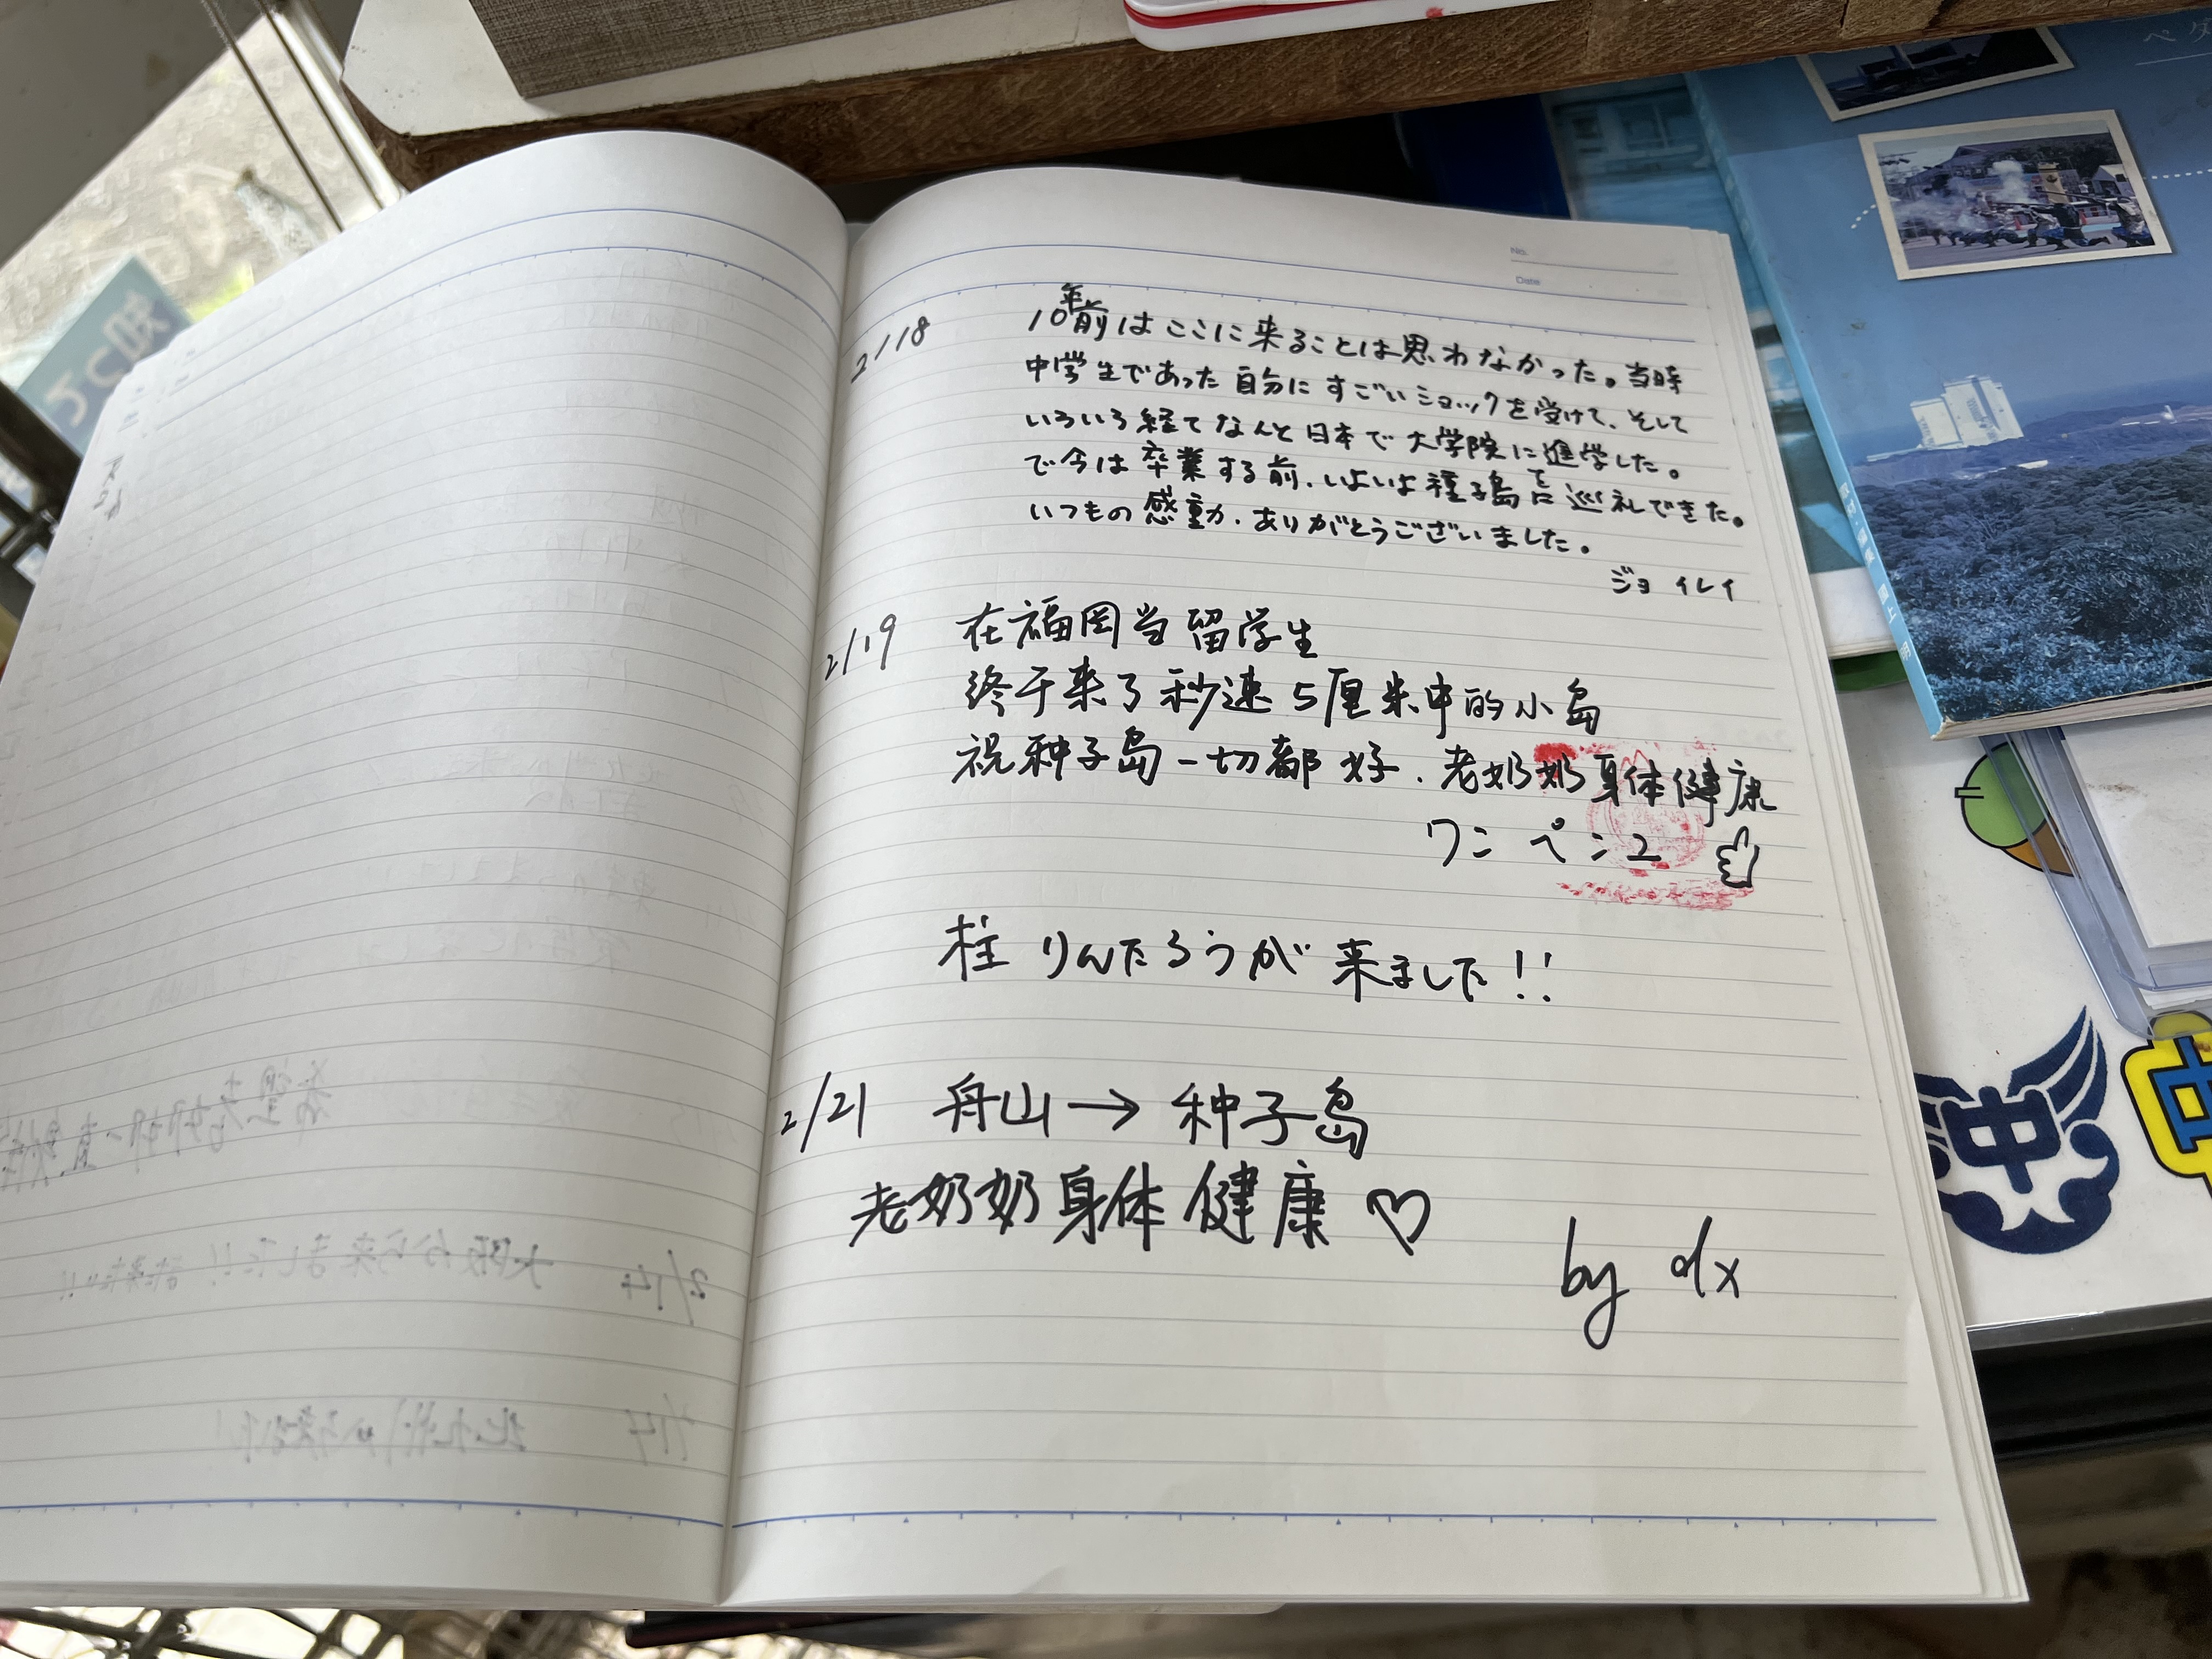 No.
Date
2/18
10年前はここに来ることは思わなかった。当時
中学生であった自分にすごいショックを受けて、そして
いろいろ経てなんと日本で大学院に進学した。
で今は卒業する前、いよいよ種子島を巡礼できた。
いつもの感動、ありがとうございました。
ジョ イレイ
2/19
在福岡当留学生
终于来了秒速5厘米中的小岛
祝种子岛一切都好.老奶奶身体健康
ワン ペンユ
柱 りんたろうが来ました!!
2/21 舟山→种子岛
老奶奶身体健康♡
by dx
2/14 大阪から来ました!!
2/14 北九州から
中